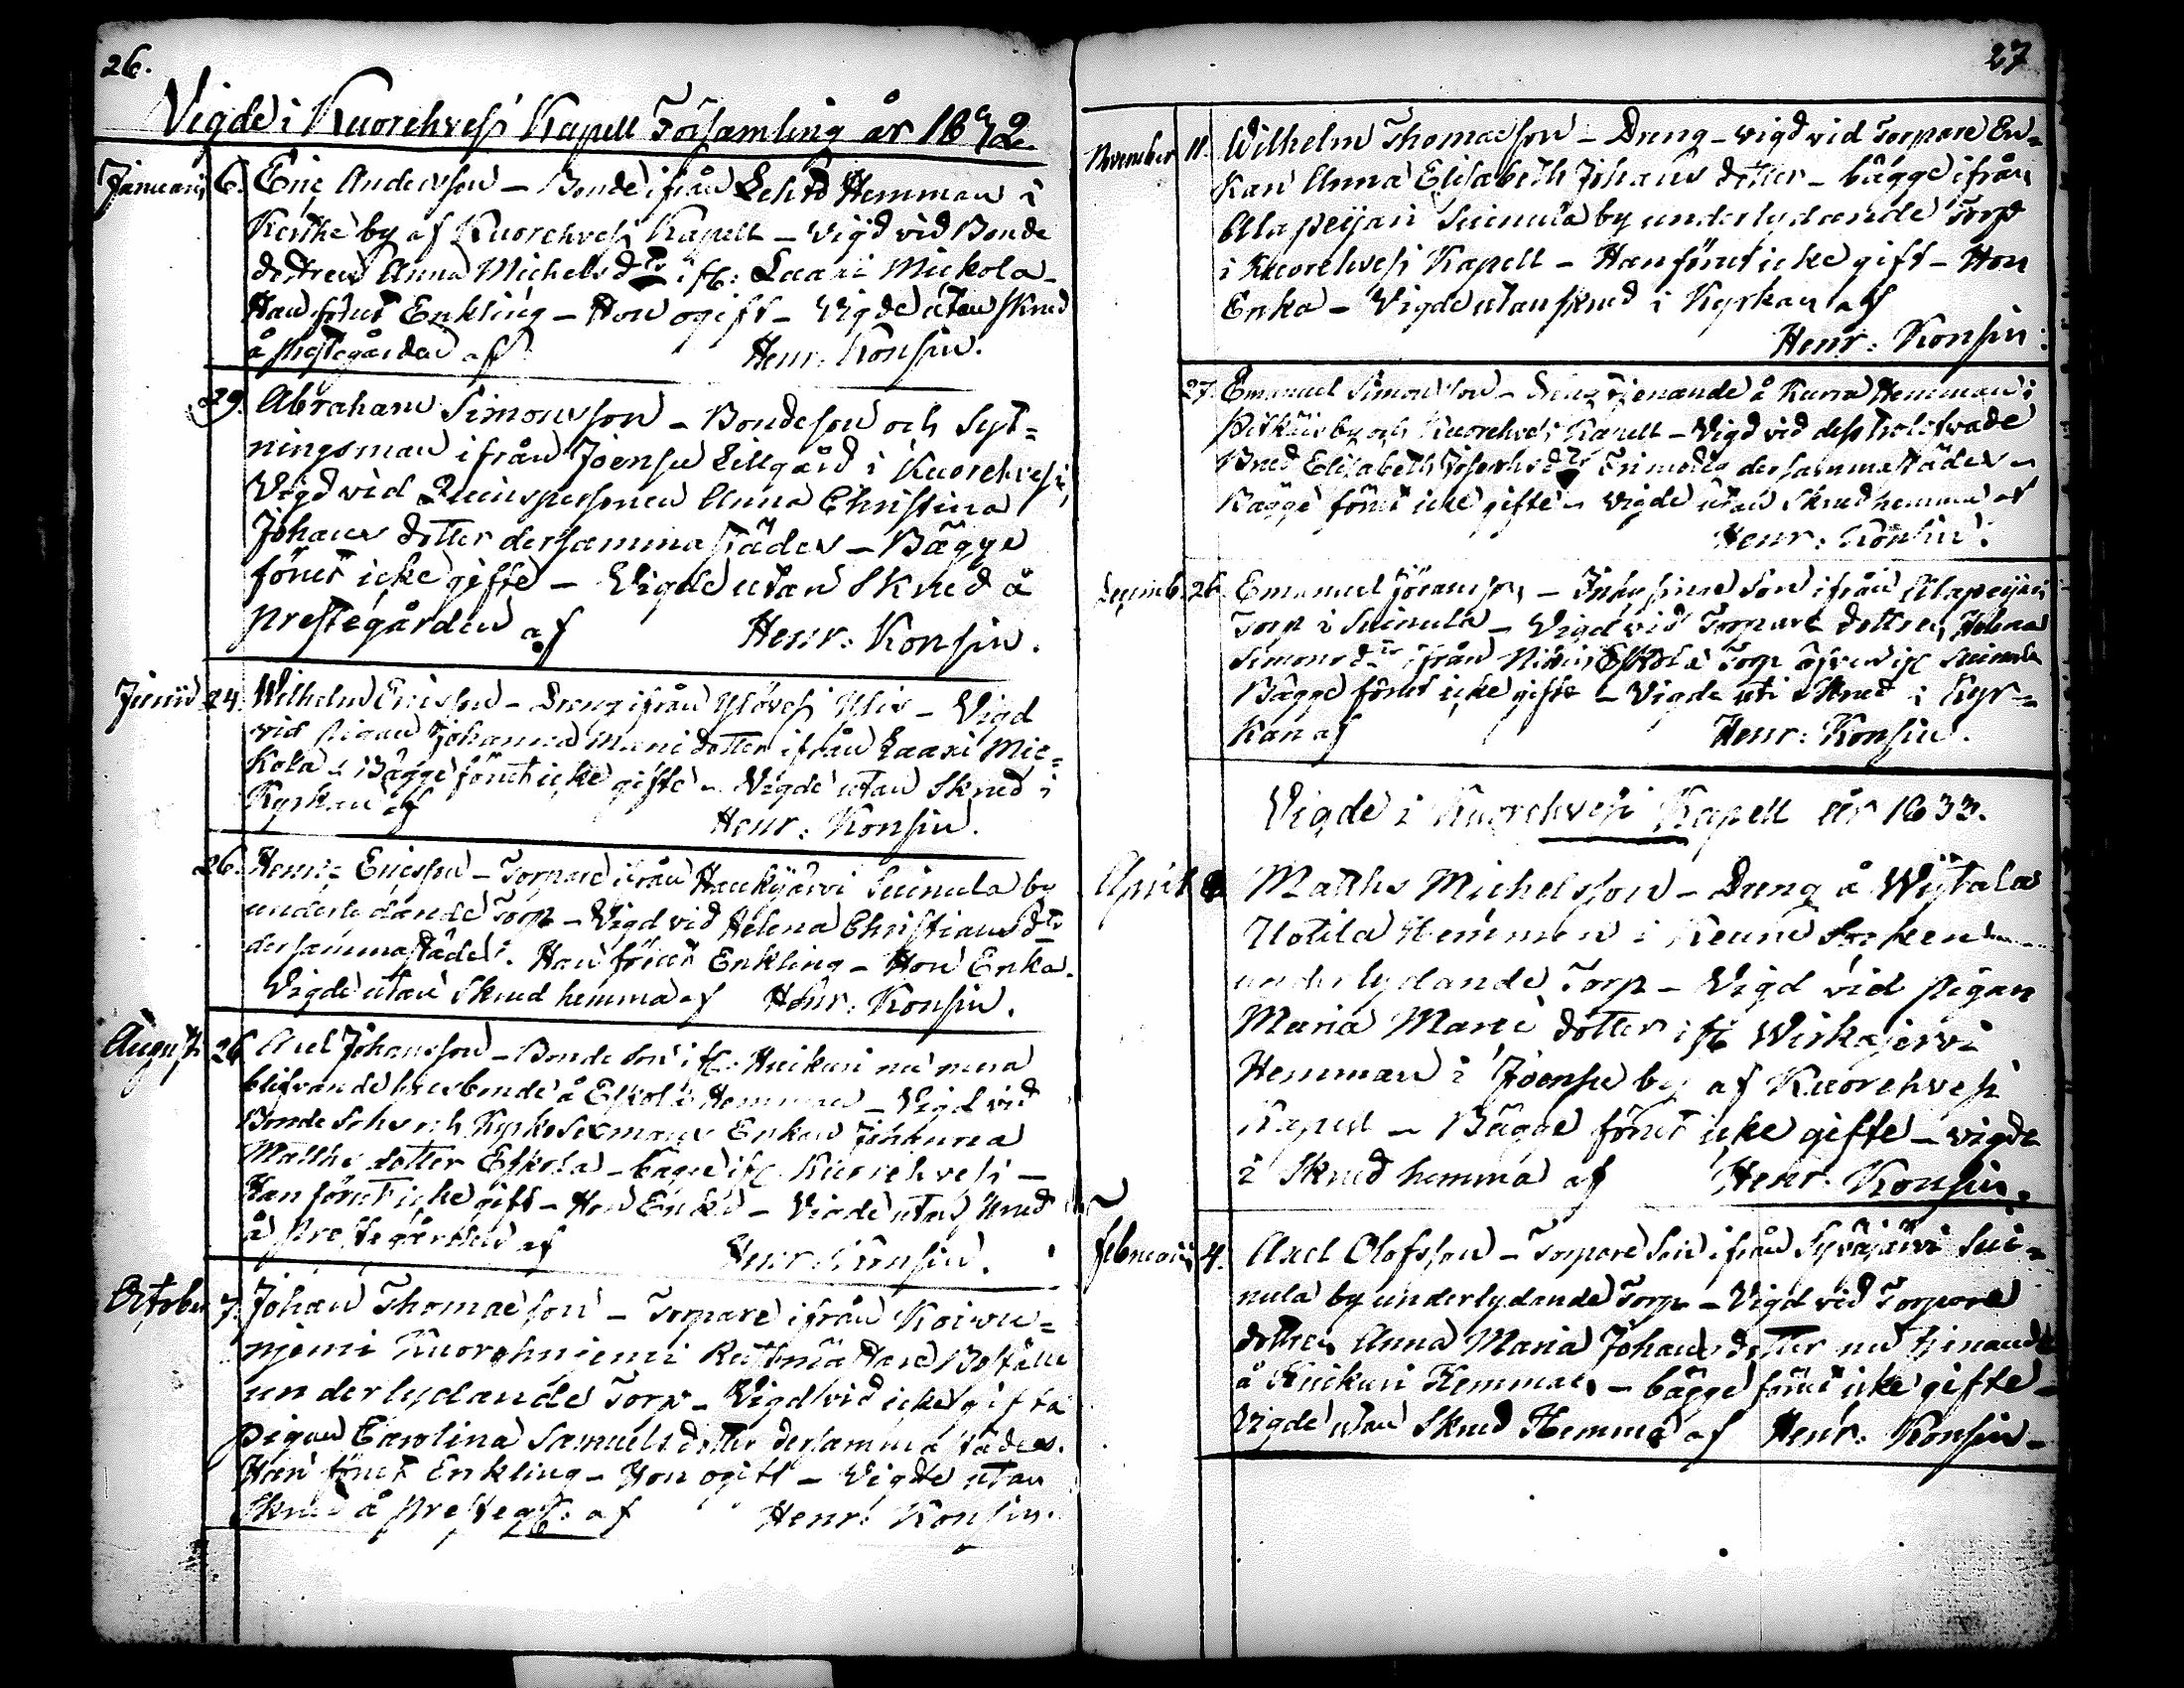 26.
Vigde i Kuorehvesi Kapell Församling år 1832.
Januarii 6. Eric Andersson – Bonde ifrån Lehto Hemman i
Kerthe by af Kuorehvesi Kapell – Vigd vid Bonde
dottren Anna Michelsdtr ifr: Laaxi Mickola –
Han förut Enkling – Hon ogift – Vigde utan skrud
å prestegården af Henr: Konsin.
29. Abraham Simonsson – Bondeson och Syt=
ningsman ifrån Joensu Lillgård i Kuorehvesi,
Vigd vid Qvinspersonen Anna Christina
Johans dotter dersammastädes – Bägge
förut icke gifte – Vigde utan Skrud å
prestegården af Henr: Konsin.
Junii 24. Wilhelm Ericsson – Dreng ifrån Ylöves Ylis – Vigd
vid pigan Johanna Marie dotter ifrån Laaxi Mic=
kola – Bägge förut icke gifte – Vigde utan Skrud i
Kyrkan af
Henr: Konsin.
26. Henr: Ericsson – Torpare ifrån Haukijärvi Suinula by
underlydande Torp – Vigd vid Helena Christiansdtr
dersammastädes. Han förut Enkling – Hon Enka.
Vigde utan Skrud hemma af Henr: Konsin.
Augusti 26 Axel Johansson – Bonde Son ifr: Huikari nu mera
blifvande husbonde å Eskola Hemman – Vigd vid
Bonde Sohns och Kyrkosexmans Enkan Johanna
Matths dotter Eskola – bägge ifr. Kuorehvesi –
Han förut icke gift – Hon Enka – Vigde utan skrud
å prestegården af Henr: Konsin.
October 7. Johan Thomaeson – Torpare ifrån Koivu=
niemi Kuorehniemi Rustmästare Boställe
underlydande Torp – Vigd vid icke gifta
pigan Carolina Samuelsdotter dersammastädes.
Han förut Enkling – Hon ogift – Vigde utan
Skrud å presteg: af Henr: Konsin.
27
November 11. Wilhelm Thomaeson – Dreng – vigd vid Torpare En=
kan Anna Elisabeth Johans dotter – bägge ifrån
Alapeijari Suinula by underlydande Torp
i Kuorehvesi Kapell – Han förut icke gift – Hon
Enka – Vigde utan skrud i Kyrkan af
Henr: Konsin.
27. Emanuel Simonsson – Dreng tjenande å Hemman i
by och Kuorehvesi Kapell – Vigd vid dess trolofvade
Brud Elisabeth Josephsdtr dersammastädes –
Bägge förut icke gifte – Vigde utan Skrud hemma af
Henr: Konsin.
Decemb. 26. Emanuel Göransson – Inhysing Son ifrån Alapeijari
Torp i Suinula – Vigd vid Torpare dottren Helena
Simonsdtr ifrån Eskola Torp äfven ifr Suinula
Bägge förut icke gifte – Vigde uti Skrud i Kyr=
kan af Henr: Konsin.
Vigde i Kuorehvesi Kapell år 1833.
April Matths Michelsson – Dreng å Wijtala
Uotila Hemman i Keuru Socken
underlydande Torp – Vigd vid pigan
Maria Marie dotter ifr Wirkajervi
Hemman i Joensu by af Kuorehvesi
Kapell – Bägge förut icke gifte – vigde
i Skrud hemma af Henr: Konsin.
Februarii 4. Axel Olofsson – Torpare Son ifrån Syväjärvi Sui=
nula by underlydande Torp – Vigd vid Torpare
dottren Anna Maria Johans dotter nu tjenande
å Huikari Hemman – bägge förut icke gifte –
Vigde utan Skrud Hemma af Henr: Konsin –